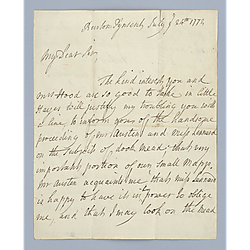 Burton Pynsent, July ye 28th 1772
My Dear Sir,
The kind interest you and
Mrs Hood are so good to take in little
Hayes will justify my troubling you with
a line to inform you of the Handsome
proceeding of Mr Austen and Miss
on the Subject of that very
important portion of our Small Mapp.
Mr Austen acquaints me that Miss
is happy to have it in her power to oblige
me, and that I may look on the